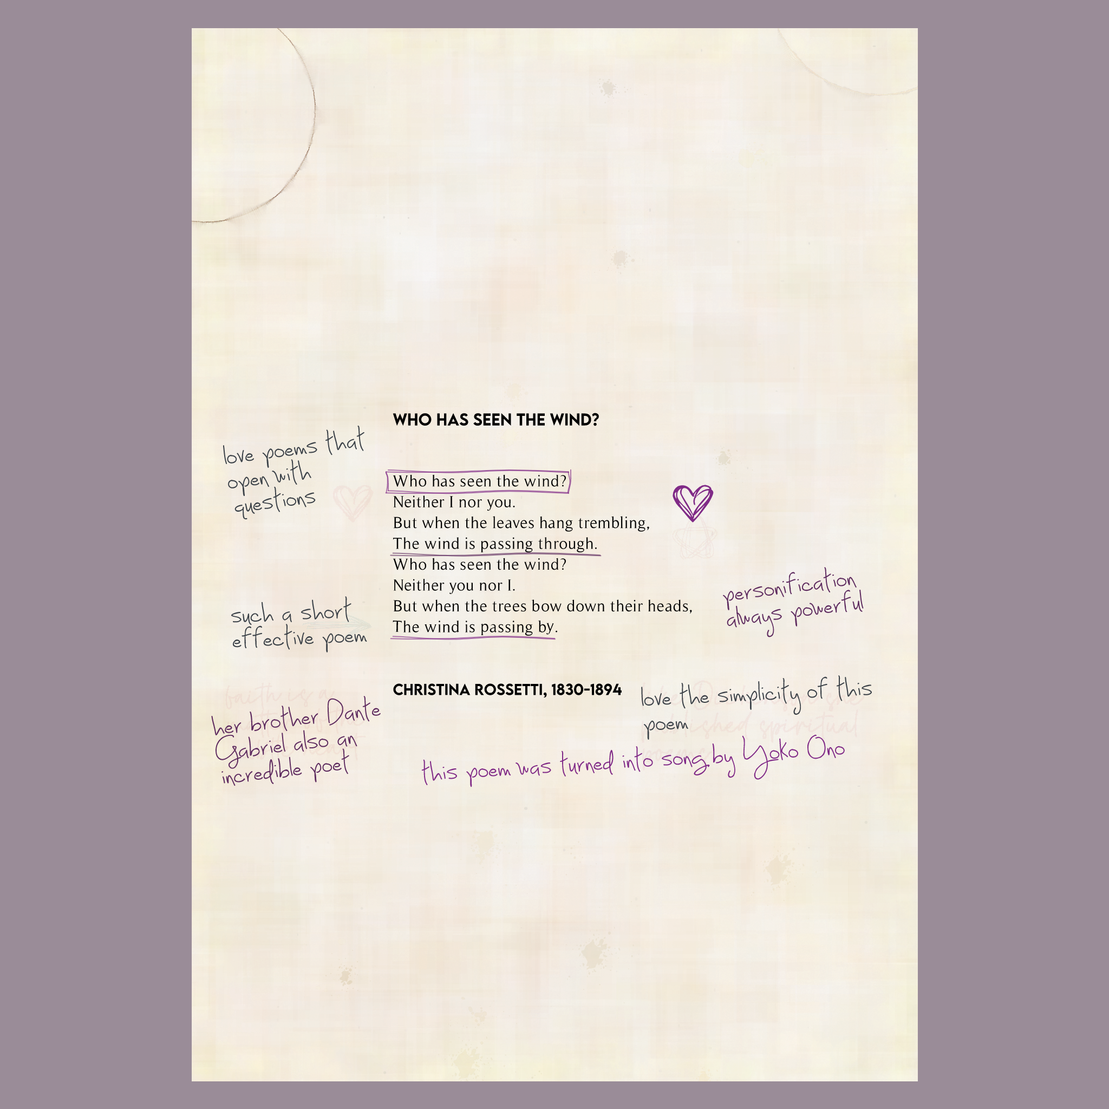 WHO HAS SEEN THE WIND?
love poems that
open with
questions
Who has seen the wind?
Neither I nor you.
But when the leaves hang trembling,
The wind is passing through.
Who has seen the wind?
Neither you nor I.
But when the trees bow down their heads,
The wind is passing by.
personification
always powerful
such a short
effective poem
CHRISTINA ROSSETTI, 1830-1894
love the simplicity of this
poem
her brother Dante
Gabriel also an
incredible poet
this poem was turned into song by Yoko Ono
faith is
shed spiritual